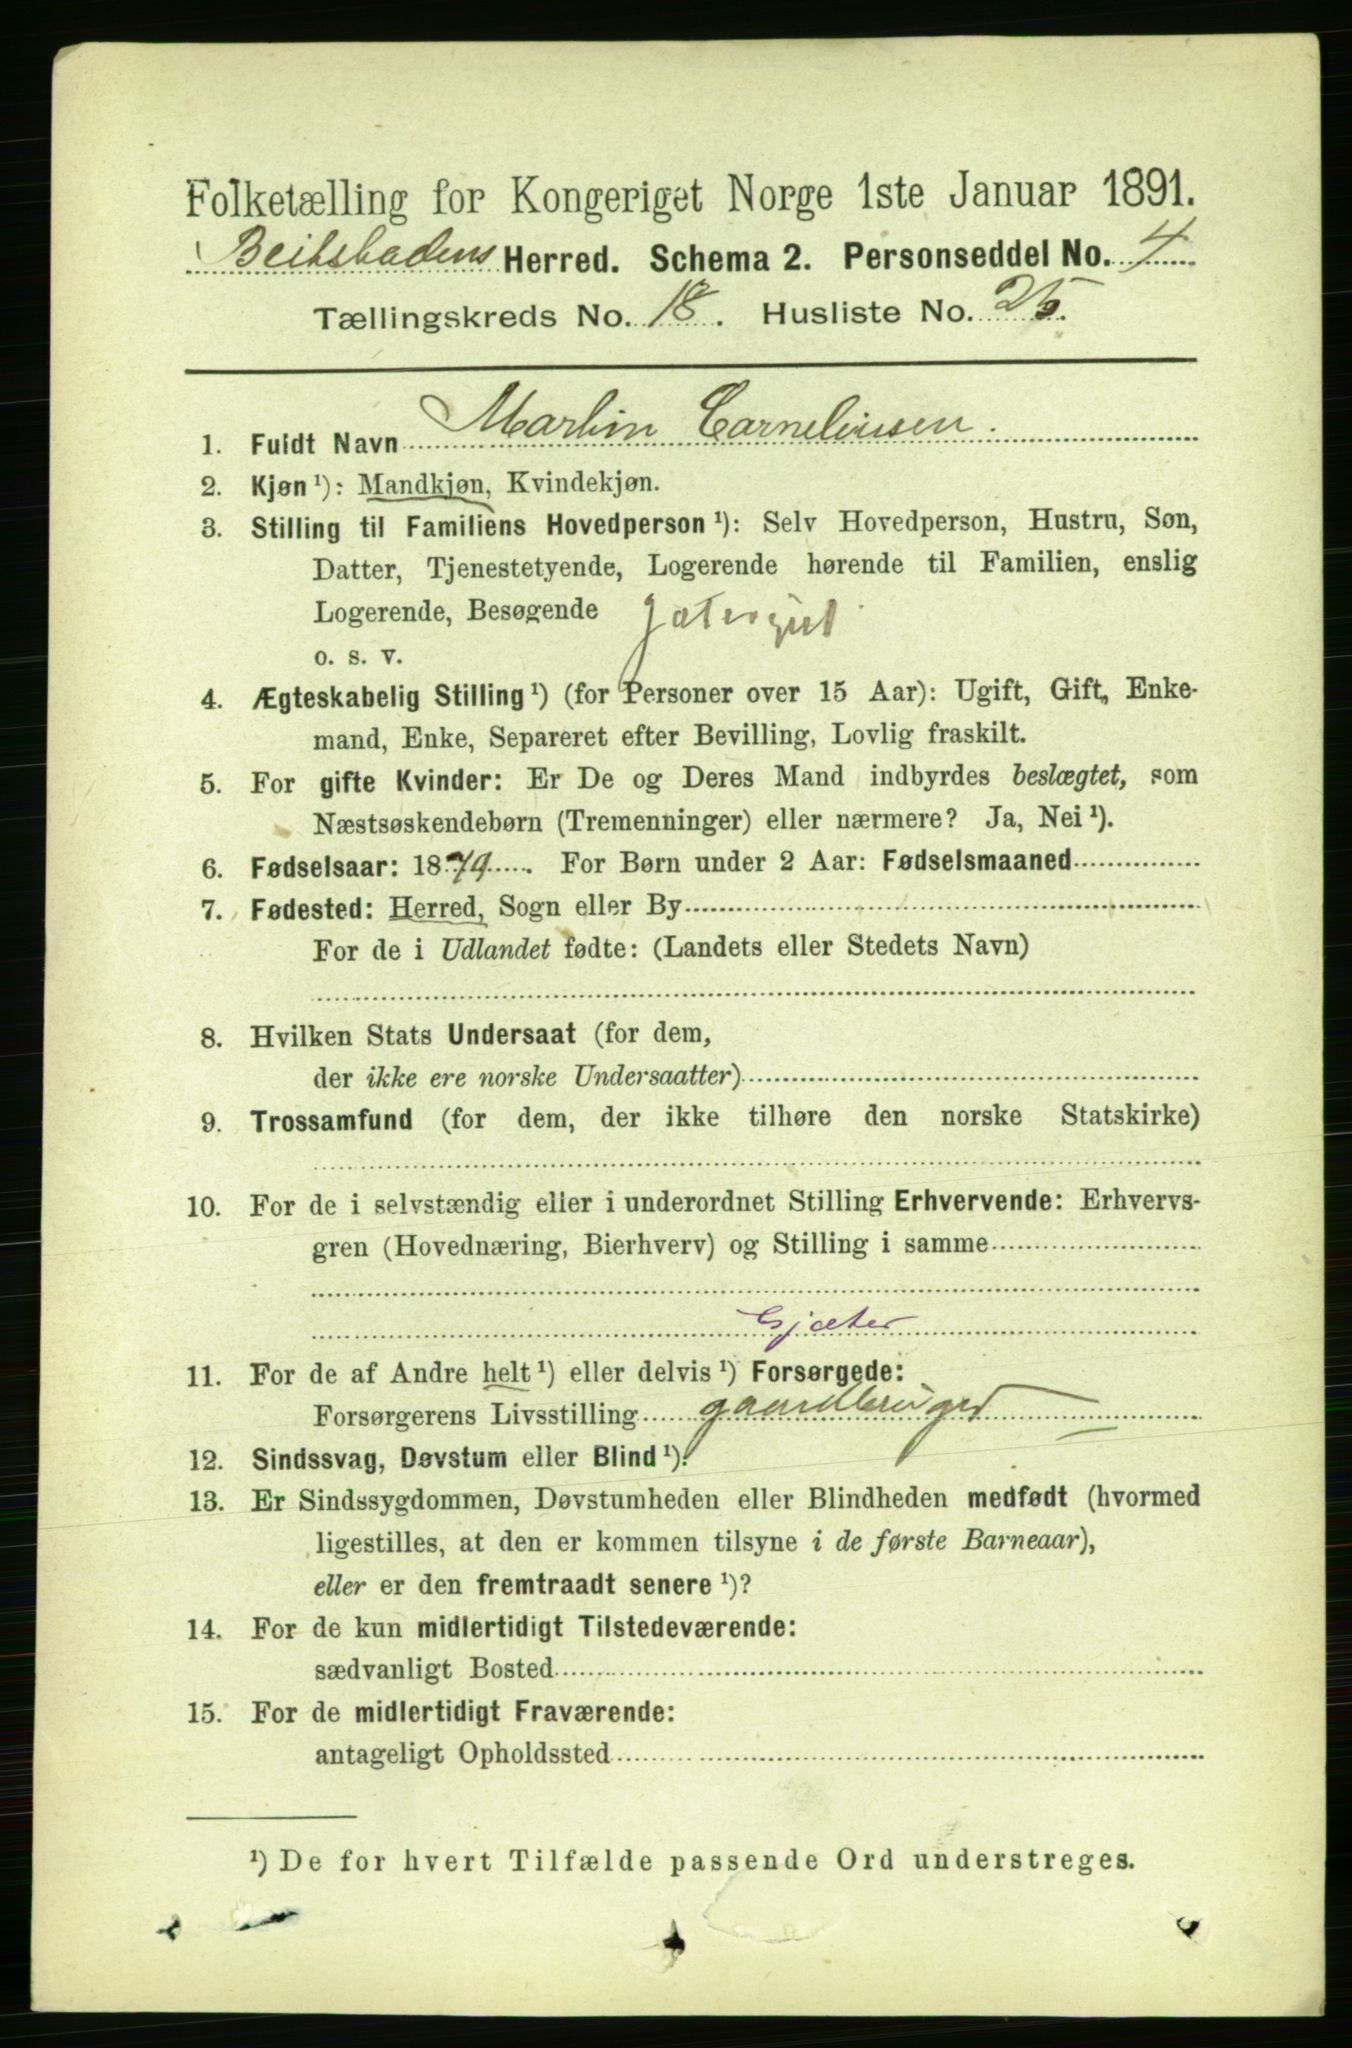 Folketælling for Kongeriget Norge 1ste Januar 1891.
Beitstadens Herred. Schema 2. Personseddel No. 4
Tællingskreds No. 18. Husliste No. 25.
1. Fuldt Navn Martin Corneliusen.
2. Kjøn ¹): Mandkjøn, Kvindekjøn.
3. Stilling til Familiens Hovedperson ¹): Selv Hovedperson, Hustru, Søn,
Datter, Tjenestetyende, Logerende hørende til Familien, enslig
Logerende, Besøgende jætergut
o. s. v.
4. Ægteskabelig Stilling ¹) (for Personer over 15 Aar): Ugift, Gift, Enke-
mand, Enke, Separeret efter Bevilling, Lovlig fraskilt.
5. For gifte Kvinder: Er De og Deres Mand indbyrdes beslægtet, som
Næstsøskendebørn (Tremenninger) eller nærmere? Ja, Nei ¹).
6. Fødselsaar: 1879. For Børn under 2 Aar: Fødselsmaaned
7. Fødested: Herred, Sogn eller By
For de i Udlandet fødte: (Landets eller Stedets Navn)
8. Hvilken Stats Undersaat (for dem,
der ikke ere norske Undersaatter)
9. Trossamfund (for dem, der ikke tilhøre den norske Statskirke)
10. For de i selvstændig eller i underordnet Stilling Erhvervende: Erhvervs-
gren (Hovednæring, Bierhverv) og Stilling i samme
Gjæter
11. For de af Andre helt ¹) eller delvis ¹) Forsørgede:
Forsørgerens Livsstilling gaardbruger
12. Sindssvag, Døvstum eller Blind ¹).
13. Er Sindssygdommen, Døvstumheden eller Blindheden medfødt (hvormed
ligestilles, at den er kommen tilsyne i de første Barneaar),
eller er den fremtraadt senere ¹)?
14. For de kun midlertidigt Tilstedeværende:
sædvanligt Bosted
15. For de midlertidigt Fraværende:
antageligt Opholdssted
¹) De for hvert Tilfælde passende Ord understreges.